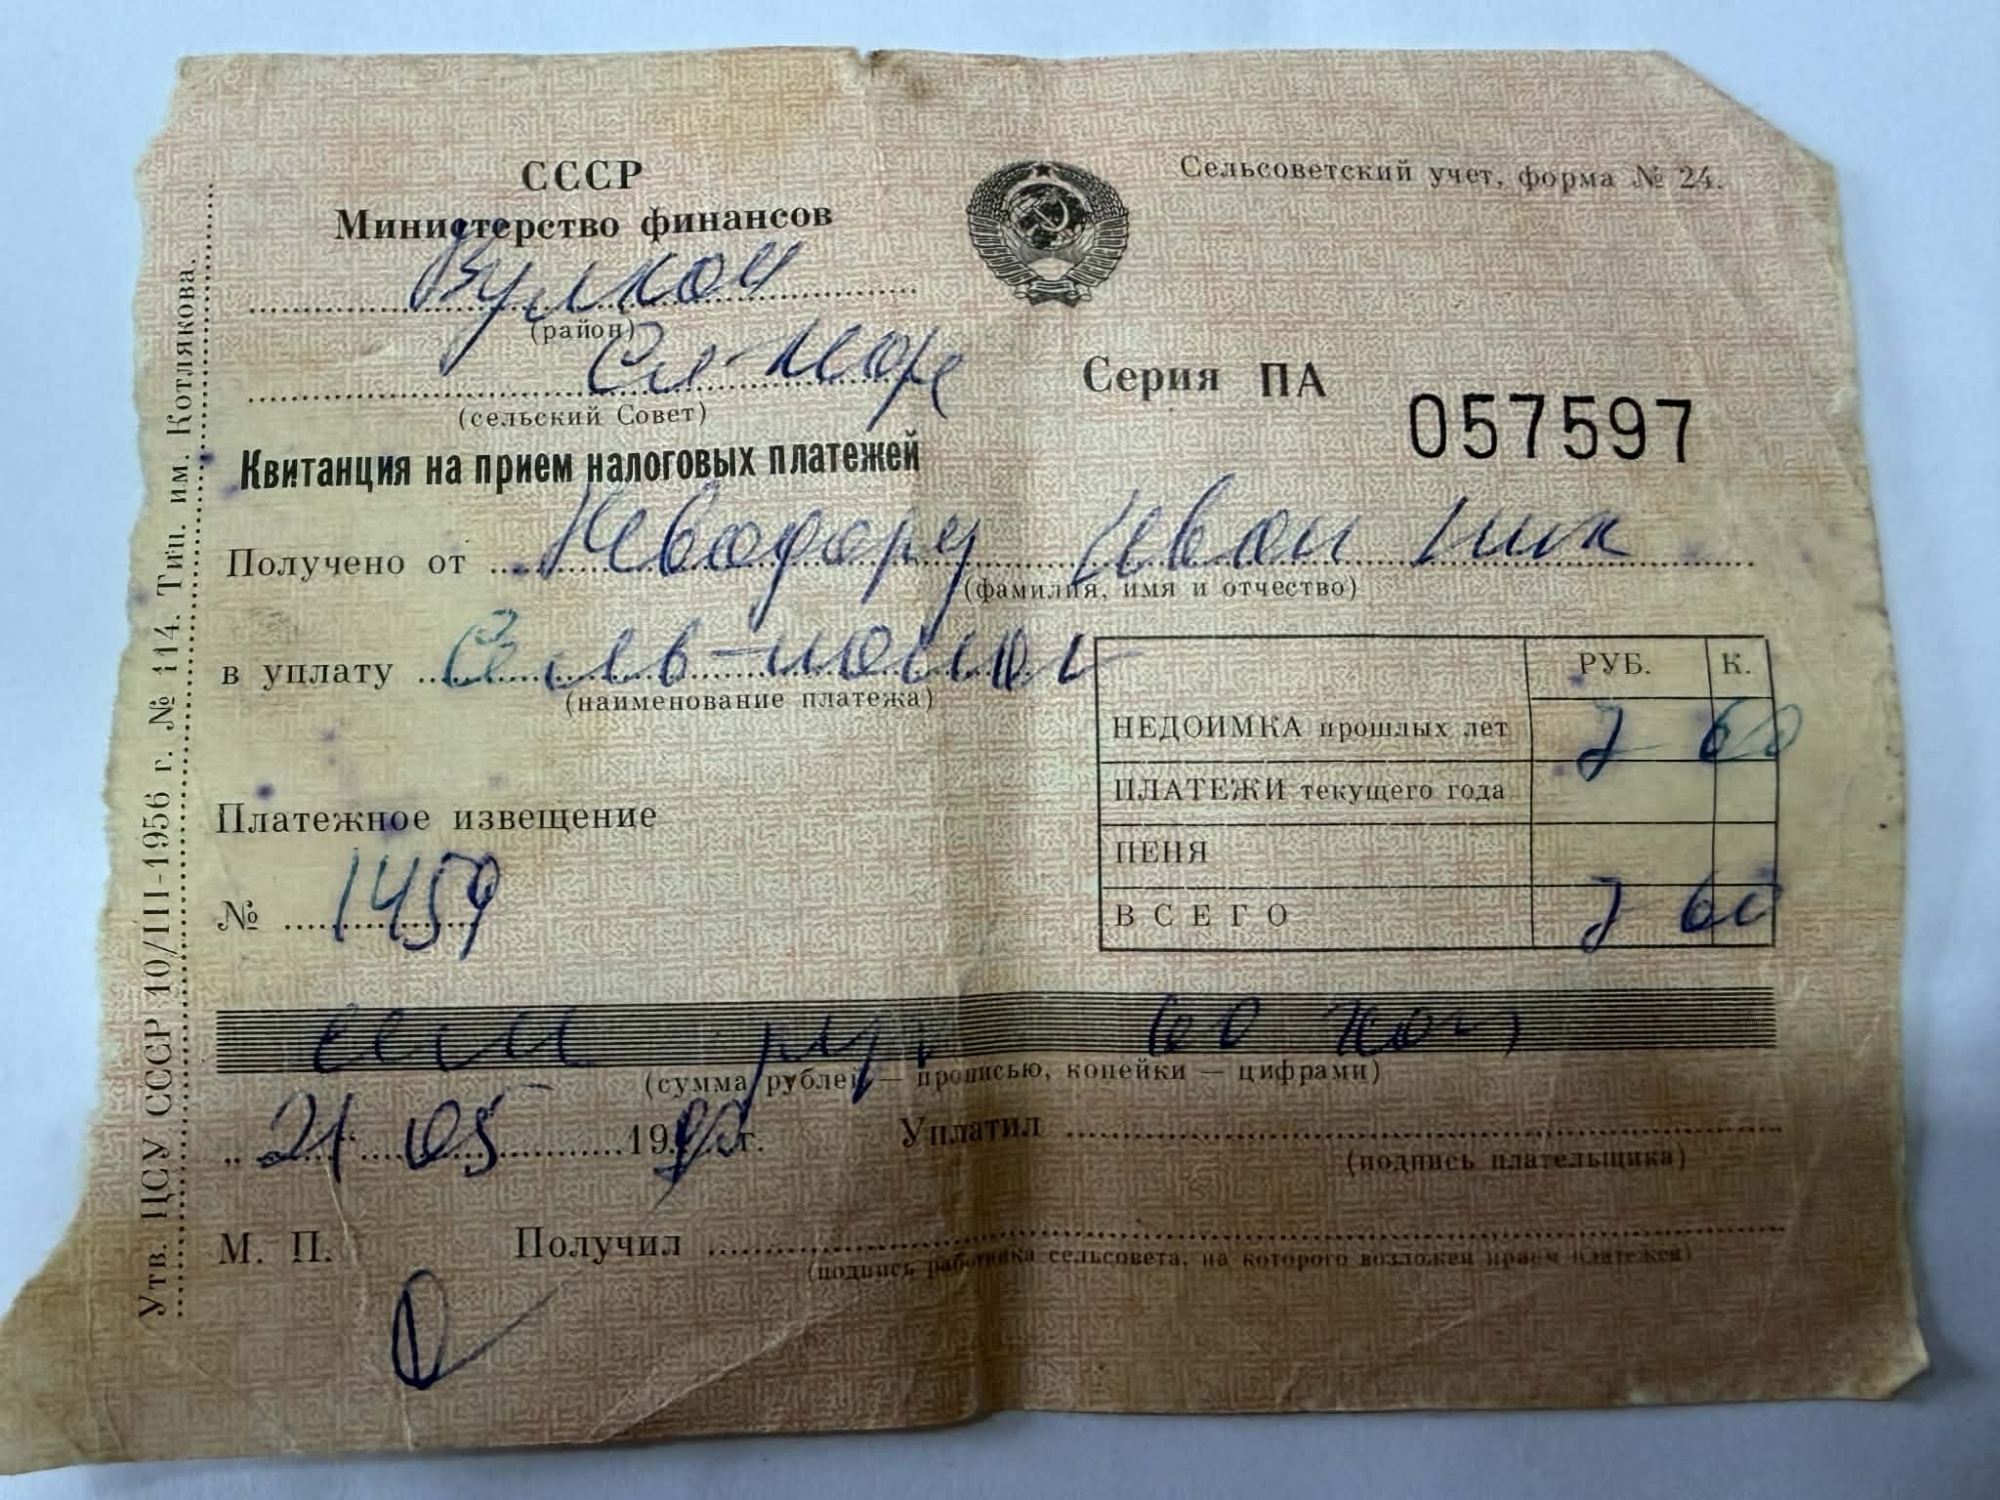 СССР
Министерство финансов
Сельсоветский учет, форма № 24.
Вулкан
(район)
(сельский Совет)
Серия ПА 057597
Квитанция на прием налоговых платежей
Получено от Иван
(фамилия, имя и отчество)
в уплату
(наименование платежа)
РУБ. К.
НЕДОИМКА прошлых лет 7 60
ПЛАТЕЖИ текущего года
ПЕНЯ
ВСЕГО 7 60
Платежное извещение
№ 1459
сем руб 60 коп
(сумма рублей — прописью, копейки — цифрами)
„21“ 05 19 г.
Уплатил
(подпись плательщика)
М. П.
Получил
(подпись работника сельсовета, на которого возложен прием платежей)
Утв. ЦСУ СССР 10/III-1956 г. № 114. Тип. им. Котлякова.